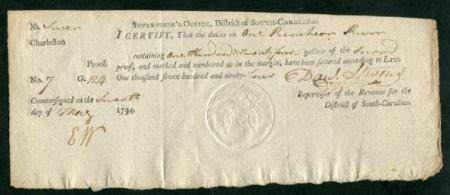 No. Seven SUPERVISOR'S-OFFICE, District of SOUTH-CAROLINA:
Charleston I CERTIFY, That the duties on One Puncheon Rum
containing One Hundred & twenty four gallons of the Second
Proof. proof, and marked and numbered as in the margin, have been secured according to Law.
No. 7 G. 124 One thousand seven hundred and ninety-four
Countersigned this Seventh Supervisor of the Revenue for the
day of May 1794. District of South-Carolina.